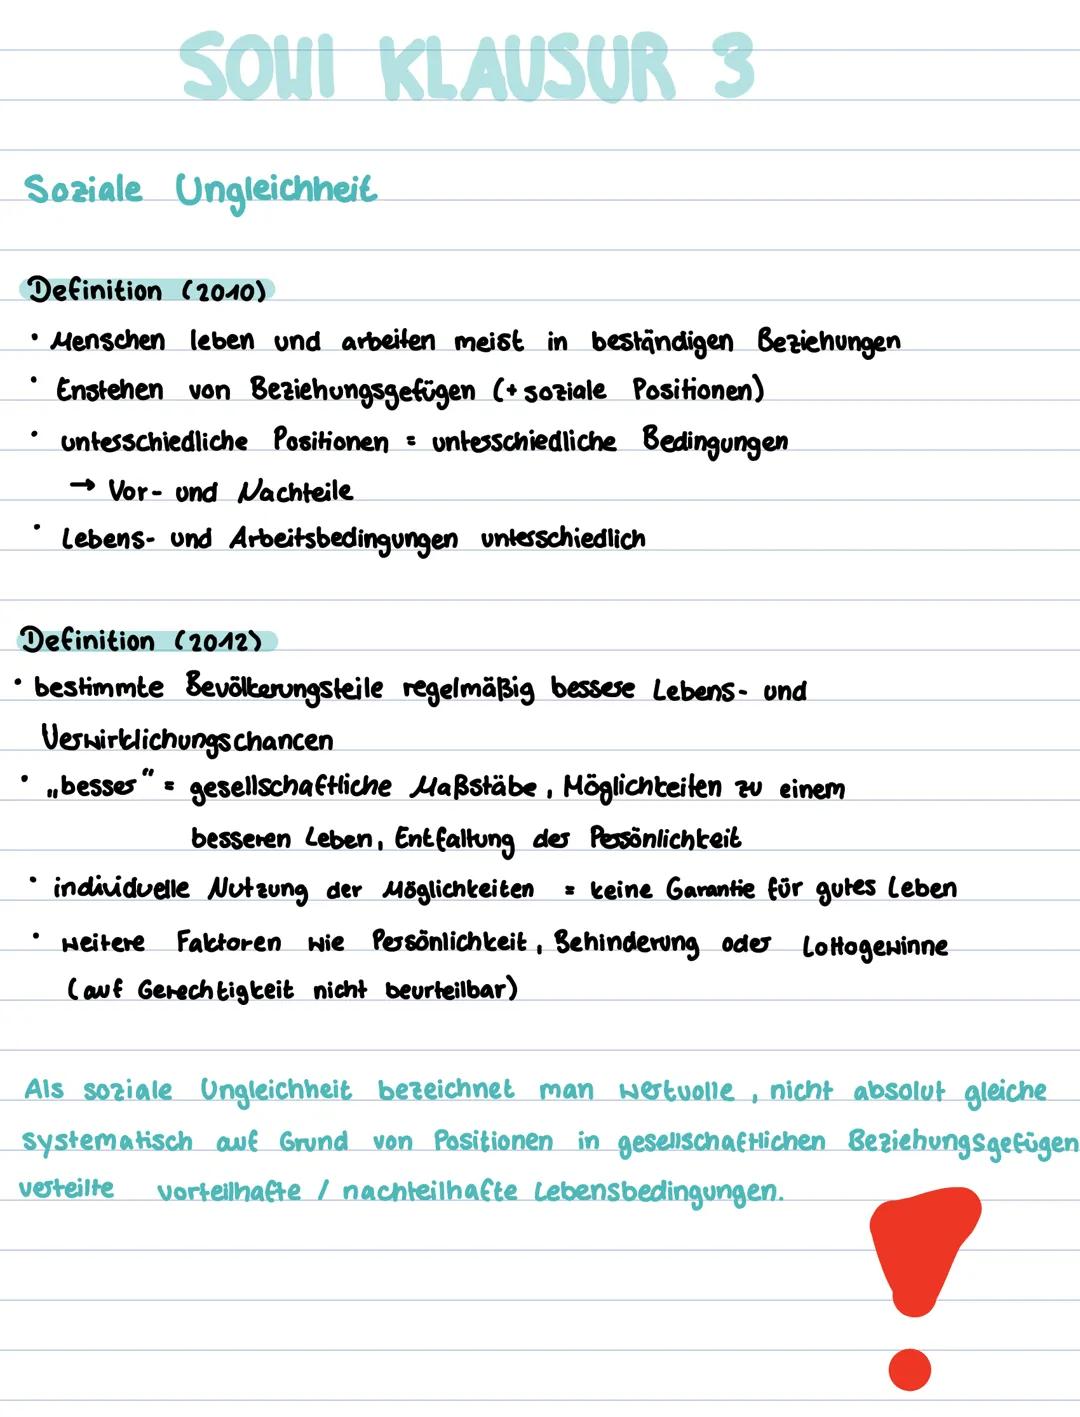 SOWI KLAUSUR 3
Soziale Ungleichheit
Definition (2010)
• Menschen leben und arbeiten meist in beständigen Beziehungen
• Enstehen von Beziehungsgefügen (+ soziale Positionen)
• unterschiedliche Positionen = unterschiedliche Bedingungen
→ Vor- und Nachteile
• Lebens- und Arbeitsbedingungen unterschiedlich
Definition (2012)
• bestimmte Bevölkerungsteile regelmäßig bessere Lebens- und
Verwirklichungschancen
• „besser" = gesellschaftliche Maßstäbe, Möglichkeiten zu einem
besseren Leben, Entfaltung der Persönlichkeit
• individuelle Nutzung der Möglichkeiten = keine Garantie für gutes Leben
• weitere Faktoren wie Persönlichkeit, Behinderung oder Lottogewinne
(auf Gerechtigkeit nicht beurteilbar)
Als soziale Ungleichheit bezeichnet man wertvolle, nicht absolut gleiche
systematisch auf Grund von Positionen in gesellschaftlichen Beziehungsgefügen
verteilte vorteilhafte / nachteilhafte Lebensbedingungen.
!